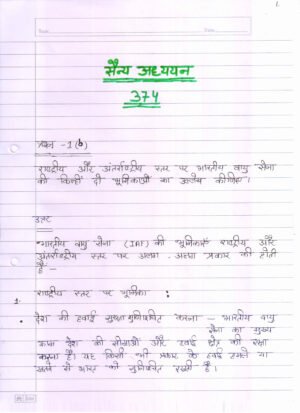 1.
Date
सैन्य अध्ययन
374
प्रश्न -1(b)
राष्ट्रीय और अंतर्राष्ट्रीय स्तर पर भारतीय वायु सेना
की किन्हीं दो भूमिकाओं का उल्लेख कीजिए।
उत्तर
भारतीय वायु सेना (IAF) की भूमिकाएँ राष्ट्रीय और
अंतर्राष्ट्रीय स्तर पर अलग-अलग प्रकार की होती
है -
1. राष्ट्रीय स्तर पर भूमिका :
देश की हवाई सुरक्षा सुनिश्चित करना - भारतीय वायु
सेना का मुख्य
काम देश की सीमाओं और हवाई क्षेत्र की रक्षा
करना है। यह किसी भी प्रकार के हवाई हमले या
खतरे से भारत को सुनिश्चित रखती है।